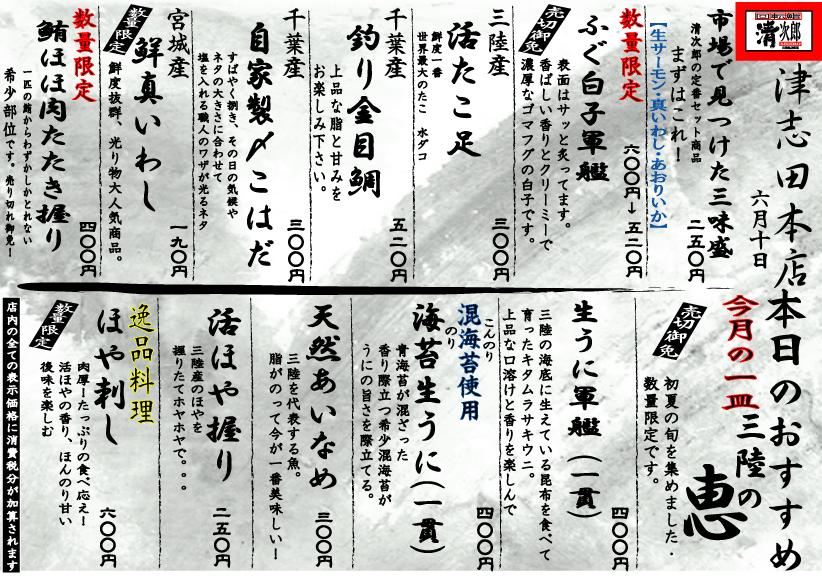 清次郎
津志田本店
六月十日
本日のおすすめ
市場で見つけた三味盛
清次郎の定番セット商品
まずはこれ!
【生サーモン・真いわし・あおりいか】
二五〇円
数量限定
六〇〇円→五二〇円
ふぐ白子軍艦
売切御免
表面はサッと炙ってます。
香ばしい香りとクリーミーで
濃厚なゴマフグの白子です。
三陸産
活たこ足
鮮度一番
世界最大のたこ 水ダコ
三〇〇円
千葉産
釣り金目鯛
上品な脂と甘みを
お楽しみ下さい。
五二〇円
千葉産
自家製〆こはだ
すばやく捌き、その日の気候や
ネタの大きさに合わせて
塩を入れる職人のワザが光るネタ
三〇〇円
宮城産
鮮真いわし
数量限定
鮮度抜群、光り物大人気商品。
一九〇円
数量限定
鮪ほほ肉たたき握り
一匹の鮪からわずかしかとれない
希少部位です。売り切れ御免!
四〇〇円
今月の一皿
三陸の
恵
売切御免
初夏の旬を集めました・
数量限定です。
生うに軍艦(一貫)
三陸の海底に生えている昆布を食べて
育ったキタムラサキウニ。
上品な口溶けと香りを楽しんで
四〇〇円
混海苔使用
こんのり
海苔生うに(一貫)
のり
青海苔が混ざった
香り際立つ希少混海苔が
うにの旨さを際立てる。
四〇〇円
天然あいなめ
三陸を代表する魚。
脂がのって今が一番美味しい!
三〇〇円
活ほや握り
三陸産のほやを
握りたてホヤホヤで。。。
二五〇円
逸品料理
ほや刺し
数量限定
肉厚!たっぷりの食べ応え!
活ほやの香り、ほんのり甘い
後味を楽しむ
六〇〇円
店内の全ての表示価格に消費税分が加算されます